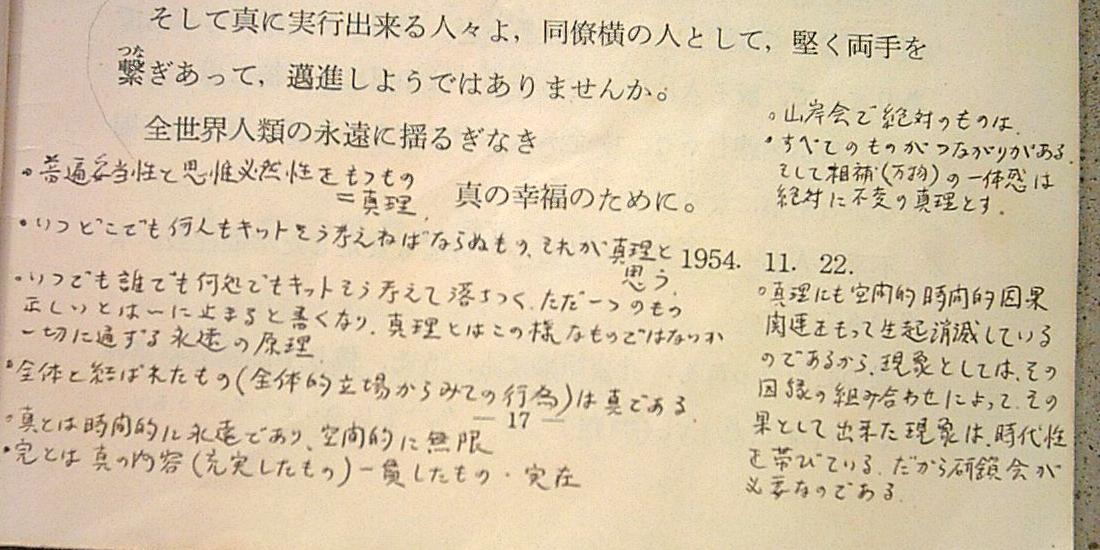 そして真に実行出来る人々よ，同僚横の人として，堅く両手を
つな
繋ぎあって，邁進しようではありませんか。
全世界人類の永遠に揺るぎなき
真の幸福のために。
1954. 11. 22.
。普遍妥当性と思惟必然性をもつもの
＝真理.
・いつどこでも何人もキットそう考えねばならぬもの、それが真理と
思う.
・いつでも誰でも何処でもキットそう考えて落ちつく、ただ一つのもの
正しいとは一に止まると書くなり、真理とはこの様なものではないか
一切に通ずる永遠の原理.
・全体と結ばれたもの(全体的立場からみての行為)は真である.
。真とは時間的に永遠であり、空間的に無限
・完とは 真の内容(充実したもの)一貫したもの・実在
— 17 —
。山岸会で絶対のものは、
・すべてのものがつながりがある.
そして相補(万物)の一体感は
絶対に不変の真理とす.
。真理にも空間的時間的因果
関連をもって生起消滅している
のであるから、現象としては、その
因縁の組み合わせによって、その
果として出来た現象は、時代性
を帯びている。だから研鑽会が
必要なのである.